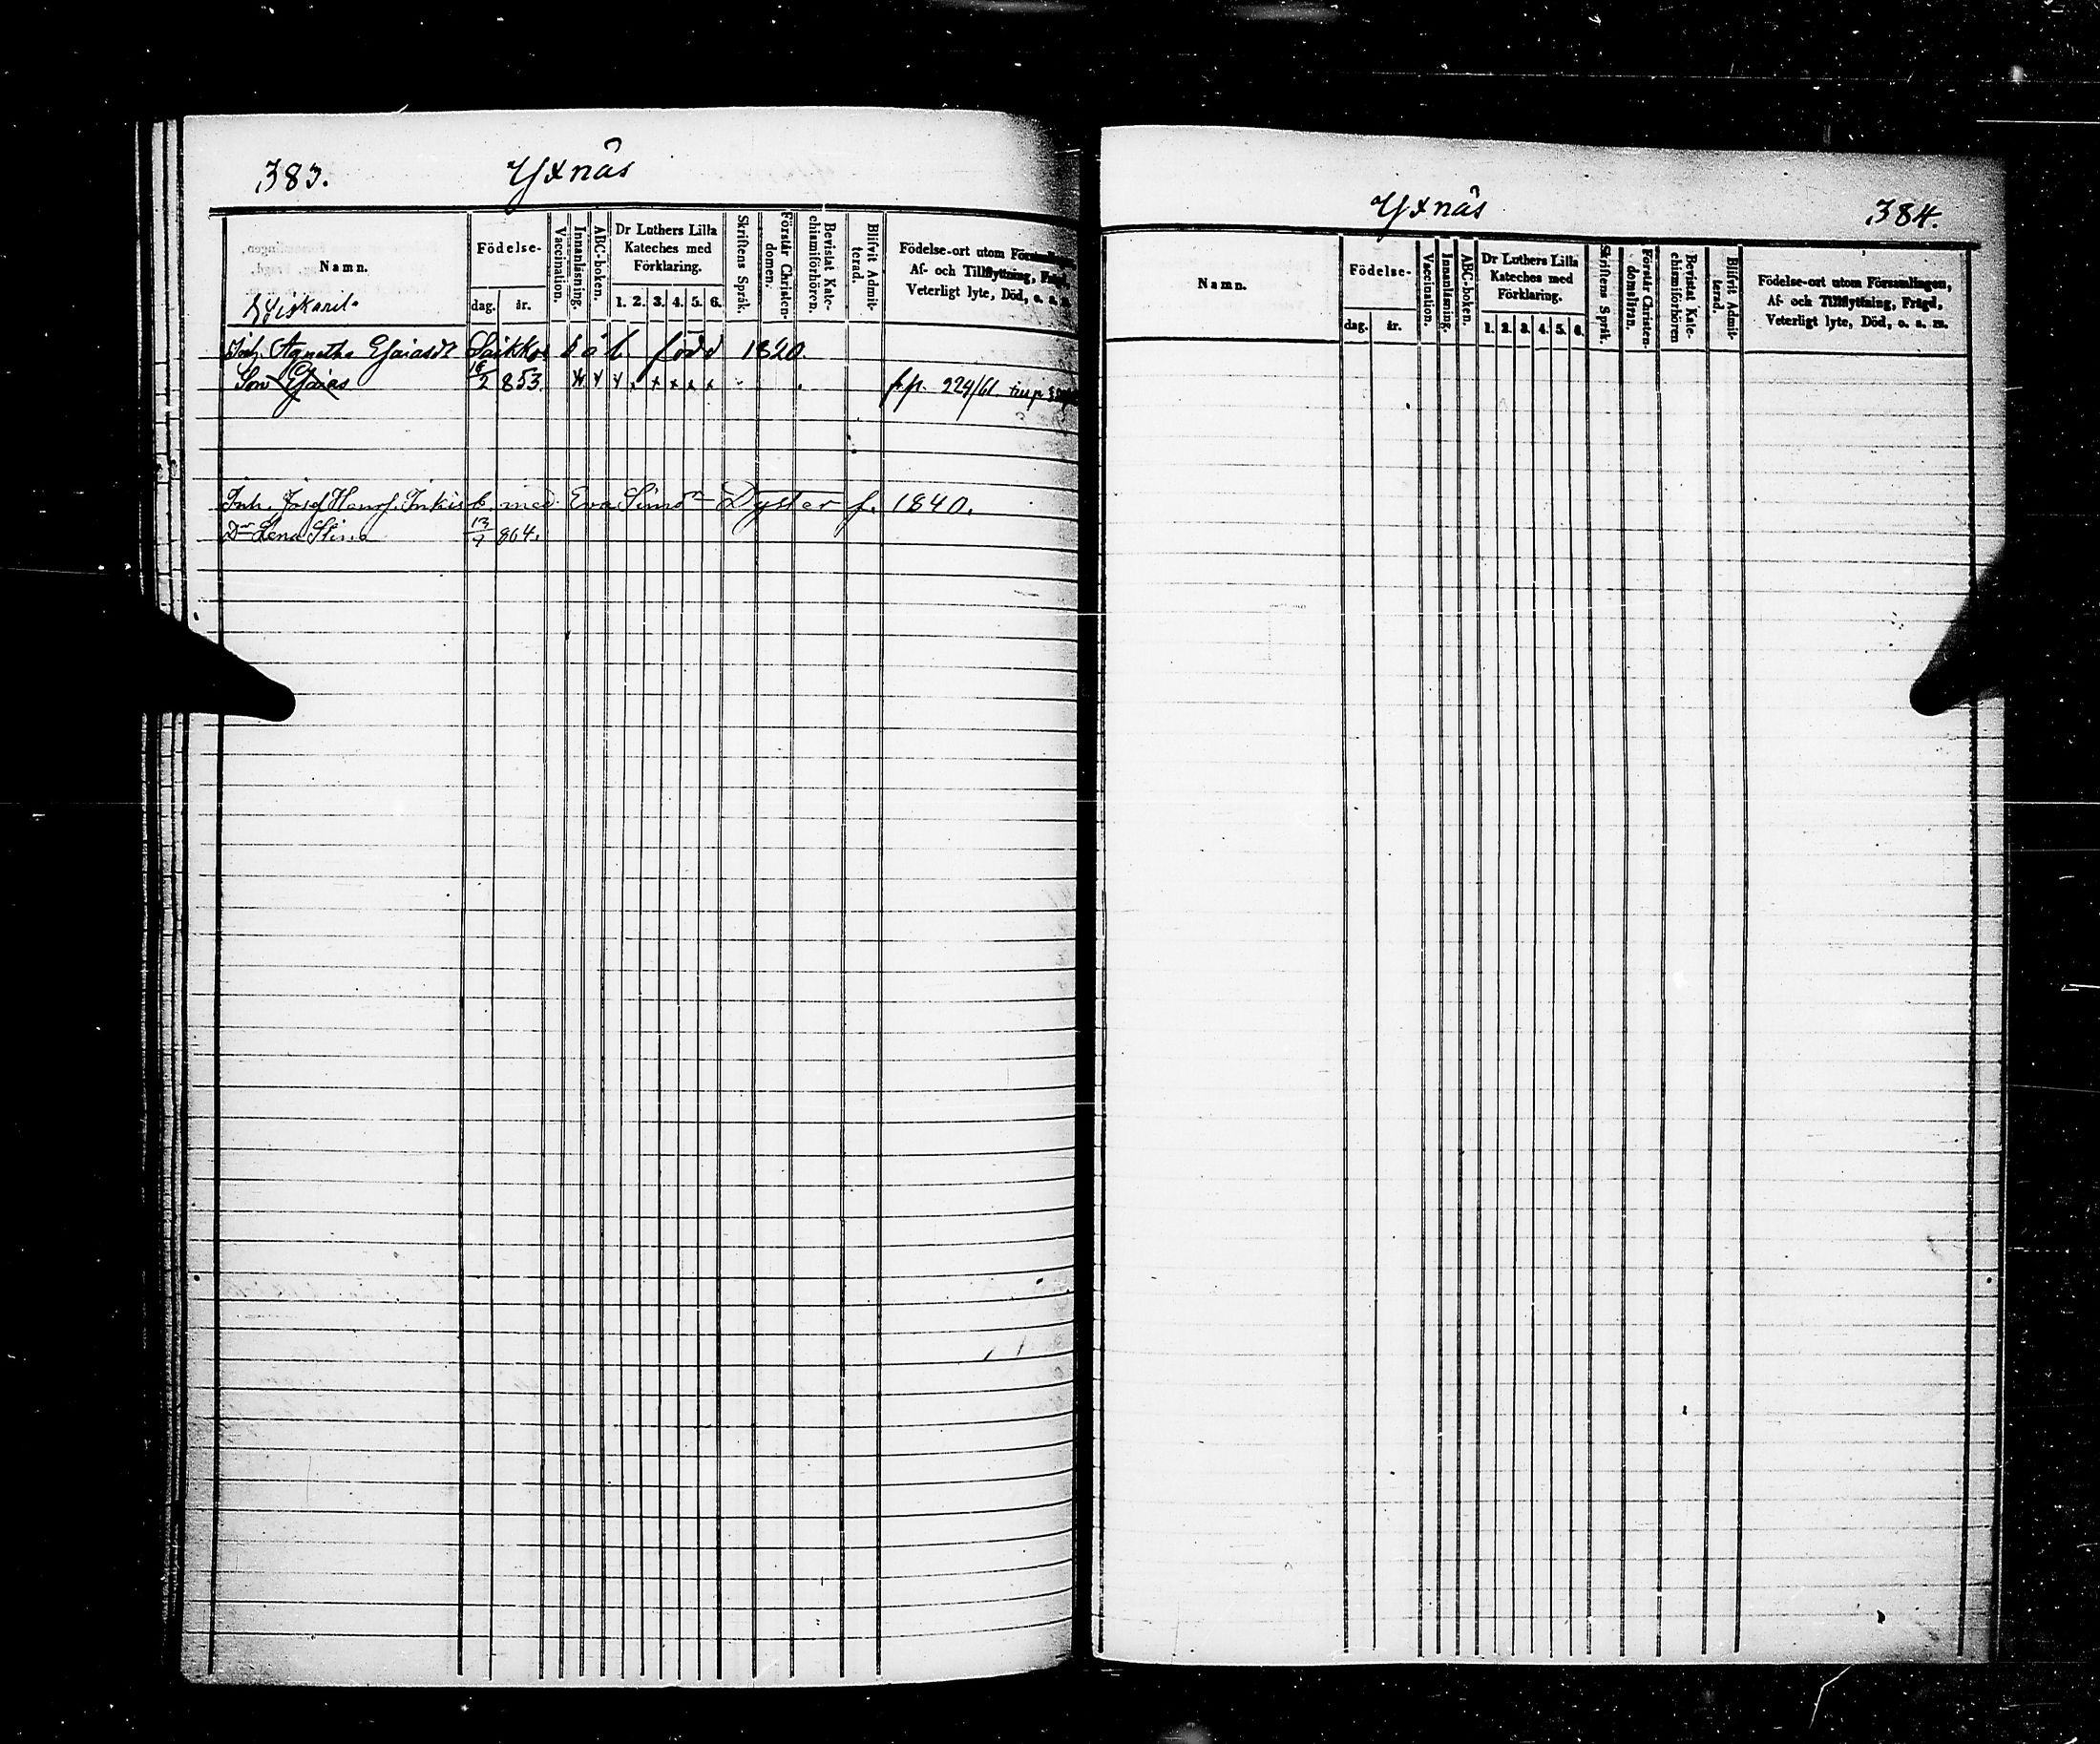 383. Yxnäs
Namn.
Födelse-
dag. år.
Vaccination.
Innanläsning.
ABC-boken.
Dr Luthers Lilla
Kateches med
Förklaring.
1. 2. 3. 4. 5. 6.
Skriftens Språk.
Förstår Christen-
domen.
Bevistat Kate-
chismiförhören.
Blifvit Admit-
terad.
Födelse-ort utom Församlingen,
Af- och Tillflyttning, Frägd,
Veterligt lyte, Död, o. a. m.
Inh. Agnetha Esaiasdr Saikko född 1820.
Son Esaias 2 853. fr. p. 224/61
Inh. Josef Henrs. Inkis b. med Eva Simsdr Dyster f. 1840.
Dr Lena Stina 13/7 864.
Yxnäs 384.
Namn.
Födelse-
dag. år.
Vaccination.
Innanläsning.
ABC-boken.
Dr Luthers Lilla
Kateches med
Förklaring.
1. 2. 3. 4. 5. 6.
Skriftens Språk.
Förstår Christen-
domsläran.
Bevistat Kate-
chismiförhören
Blifvit Admit-
terad.
Födelse-ort utom Församlingen,
Af- och Tillflyttning, Frägd,
Veterligt lyte, Död, o. a. m.